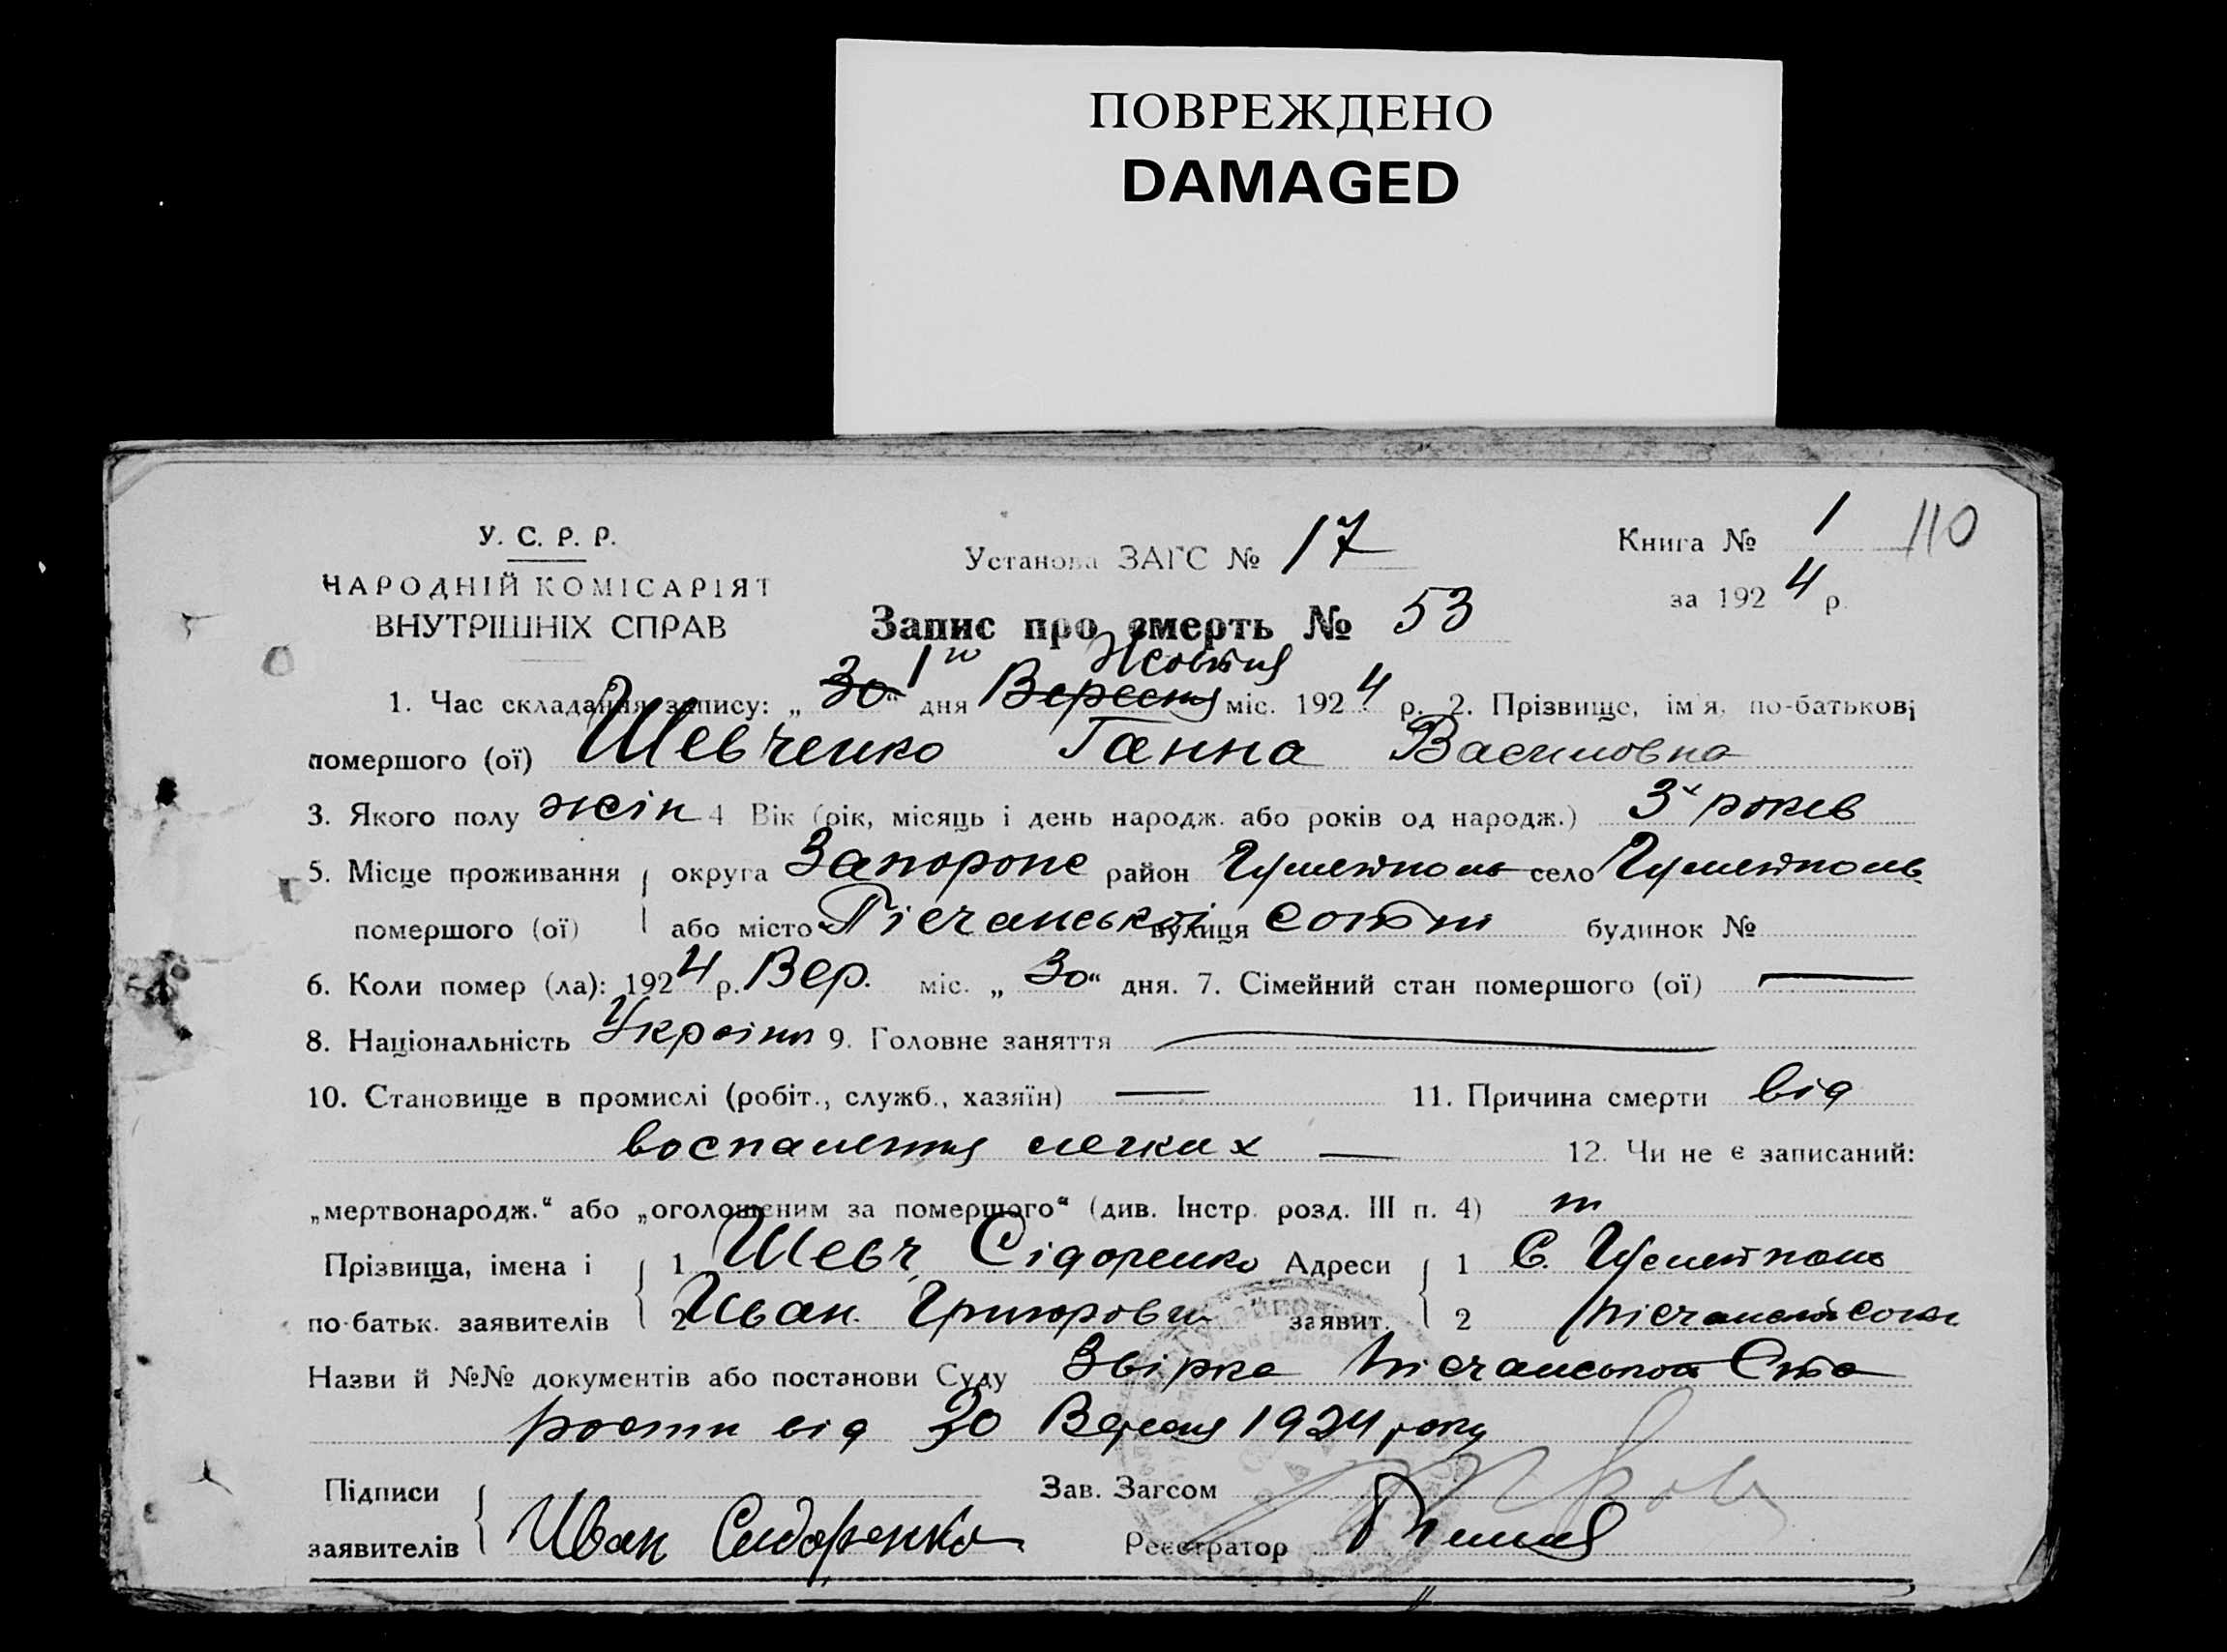 ПОВРЕЖДЕНО
DAMAGED
У. С. Р. Р.
НАРОДНІЙ КОМІСАРІЯТ
ВНУТРІШНІХ СПРАВ
Установа ЗАГС № 17
Книга № 1 110
за 1924 р.
Запис про смерть № 53
1го Жовтня
1. Час складання запису: „30“ дня Вересня міс. 1924 р. 2. Прізвище, ім'я, по-батькові
померлого (ої) Шевченко Ганна Василовна
3. Якого полу жін 4 Вік (рік, місяць і день народж. або років од народж.) 3х роков
5. Місце проживання округа Запорожс район Гуляйполь село Гуляйполь
помершого (ої) або місто Пісчанської вулиця сотни будинок №
6. Коли помер (ла): 1924 р. Вер. міс. „30“ дня. 7. Сімейний стан помершого (ої) —
8. Національність Україн 9. Головне заняття —
10. Становище в промислі (робіт., служб., хазяїн) — 11. Причина смерти від
воспалення легких — 12. Чи не є записаний:
„мертвонародж.“ або „оголошеним за помершого“ (див. Інстр. розд. III п. 4)
Прізвища, імена і 1 Шевч Сідоренко Адреси 1 С. Гуляйполь
по-батьк. заявителів 2 Иван Григорович заявит. 2 Пісчанської сотн
Назви й №№ документів або постанови Суду Звірка Пісчанської Ста
рости від 30 Вересня 1924 року
Підписи Зав. Загсом
заявителів Иван Сидоренко Реєстратор